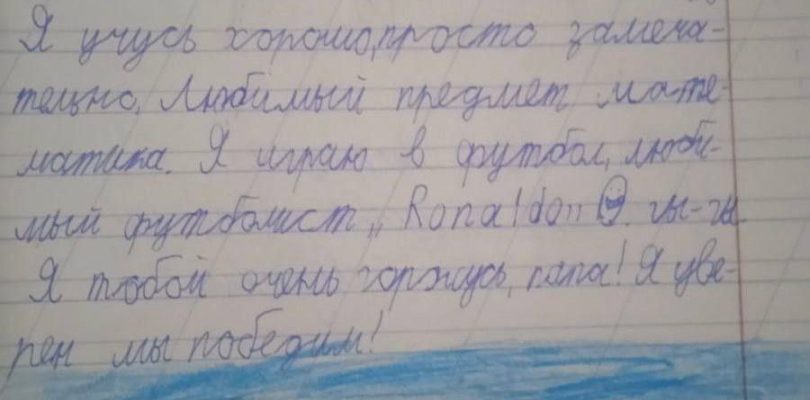 Я учусь хорошо,просто замеча-
тельно. Любимый предмет мате-
матика. Я играю в футбол, люби-
мый футболист „Ronaldo" . гы-гы.
Я тобой очень горжусь, папа! Я уве-
рен мы победим!